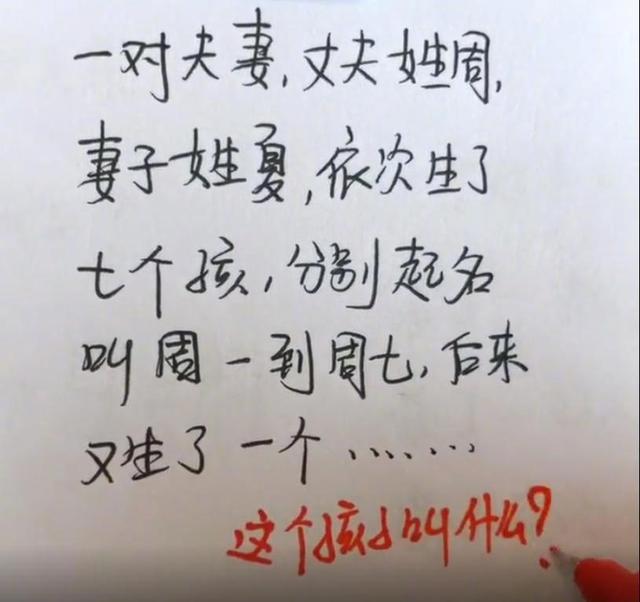 一对夫妻,丈夫姓周,
妻子姓夏,依次生了
七个孩,分别起名
叫周一到周七,后来
又生了一个……
这个孩子叫什么?